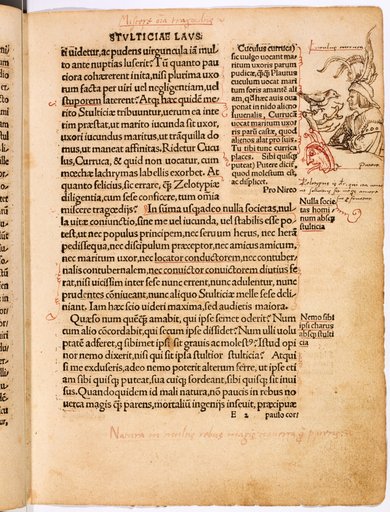 Miscere oia tragoediis
STVLTICIAE LAVS.
ti videtur, ac pudens virguncula, iā mul
to ante nuptias luserit? Tū quanto pau
ciora cohærerent inita, nisi plurima uxo
rum facta per uiri uel negligentiam, uel
stuporem laterent? Atq; hæc quidē me
rito Stulticiæ tribuuntur, uerum ea inte
rim præstat, ut marito iucunda sit uxor,
uxori iucundus maritus, ut trāquilla do
mus, ut maneat affinitas. Ridetur Cucu
lus, Curruca, & quid non uocatur, cum
mœchæ lachrymas labellis exorbet. At
quanto felicius, sic errare, q̄ Zelotypiæ
diligentia, cum sese conficere, tum omia
miscere tragœdijs? In sūma usqadeo nulla societas, nul
la uitæ coniunctio, sine me uel iucunda, uel stabilis esse po
test, ut nec populus principem, nec seruum herus, nec herā
pedissequa, nec discipulum præceptor, nec amicus amicum,
nec maritum uxor, nec locator conductorem, nec contuber
nalis contubernalem, nec conuictor conuictorem diutius fe
rat, nisi uicissim inter sese nunc errent, nunc adulentur, nunc
prudentes cōniueant, nunc aliquo Stulticiæ melle sese deli
niant. Iam hæc scio uideri maxima, sed audietis maiora.
Quæso num quēq̄ amabit, qui ipse semet oderit? Num
cum alio cōcordabit, qui secum ipse dissidet? Num ulli uolu
ptatē adferet, q sibimet ipsi sit grauis ac molest9? Istud opi
nor nemo dixerit, nisi qui sit ipsa stultior stulticia? Atqui
si me excluseris, adeo nemo poterit alterum ferre, ut ipse eti
am sibi quisq; puteat, sua cuiq; sordeant, sibi quisq; sit inui
sus. Quandoquidem id mali natura, nō paucis in rebus no
uerca magis q̄ parens, mortaliū ingenijs inseuit, præcipuæ
E 2 paulo cor
Cuculus curruca)
sic uulgo uocant ma
ritum uxoris parum
pudicæ, q̄q̄ Plautus
cuculum uocat mari
tum foris amantē ali
am, q̄ hæc auis oua
ponat in alieno nido
Iuuenalis, Currucā
uocat maritum uxo
ris parū castæ, quod
alienos alat pro suis.
Tu tibi tunc curruca
places. Sibi quisq;
puteat) Putere dicit,
quod molestum est,
ac displicet.
Pro Niro
Nulla socie
tas homi
num absq;
stulticia
Nemo sibi
ipsi charus
absq; stulti
cia
Natura in multis rebus magis nouerca q̄ parens